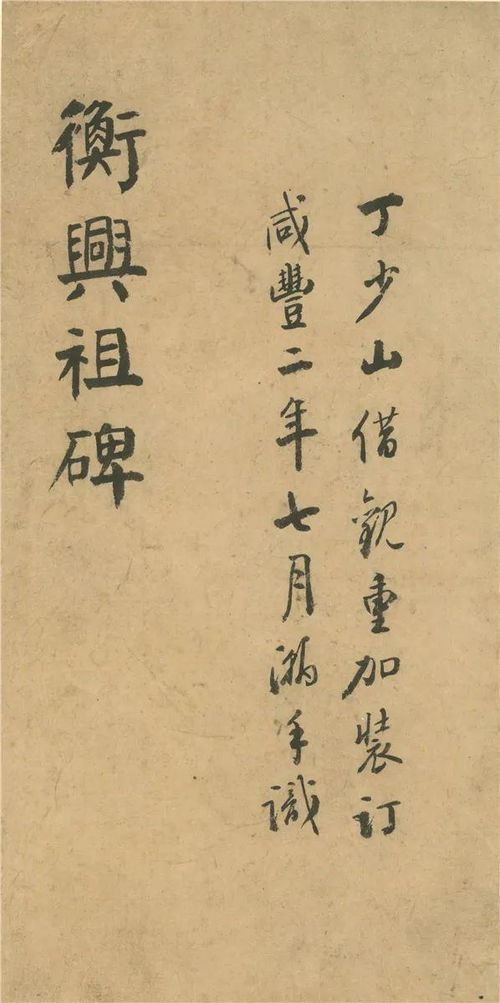 丁少山借觀重加裝訂
咸豐二年七月瀚手識
衡興祖碑